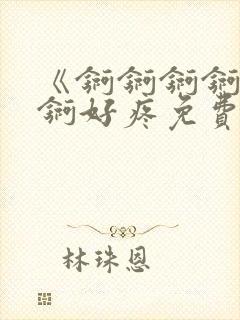 《锕锕锕锕
锕好疼免費
林珠恩